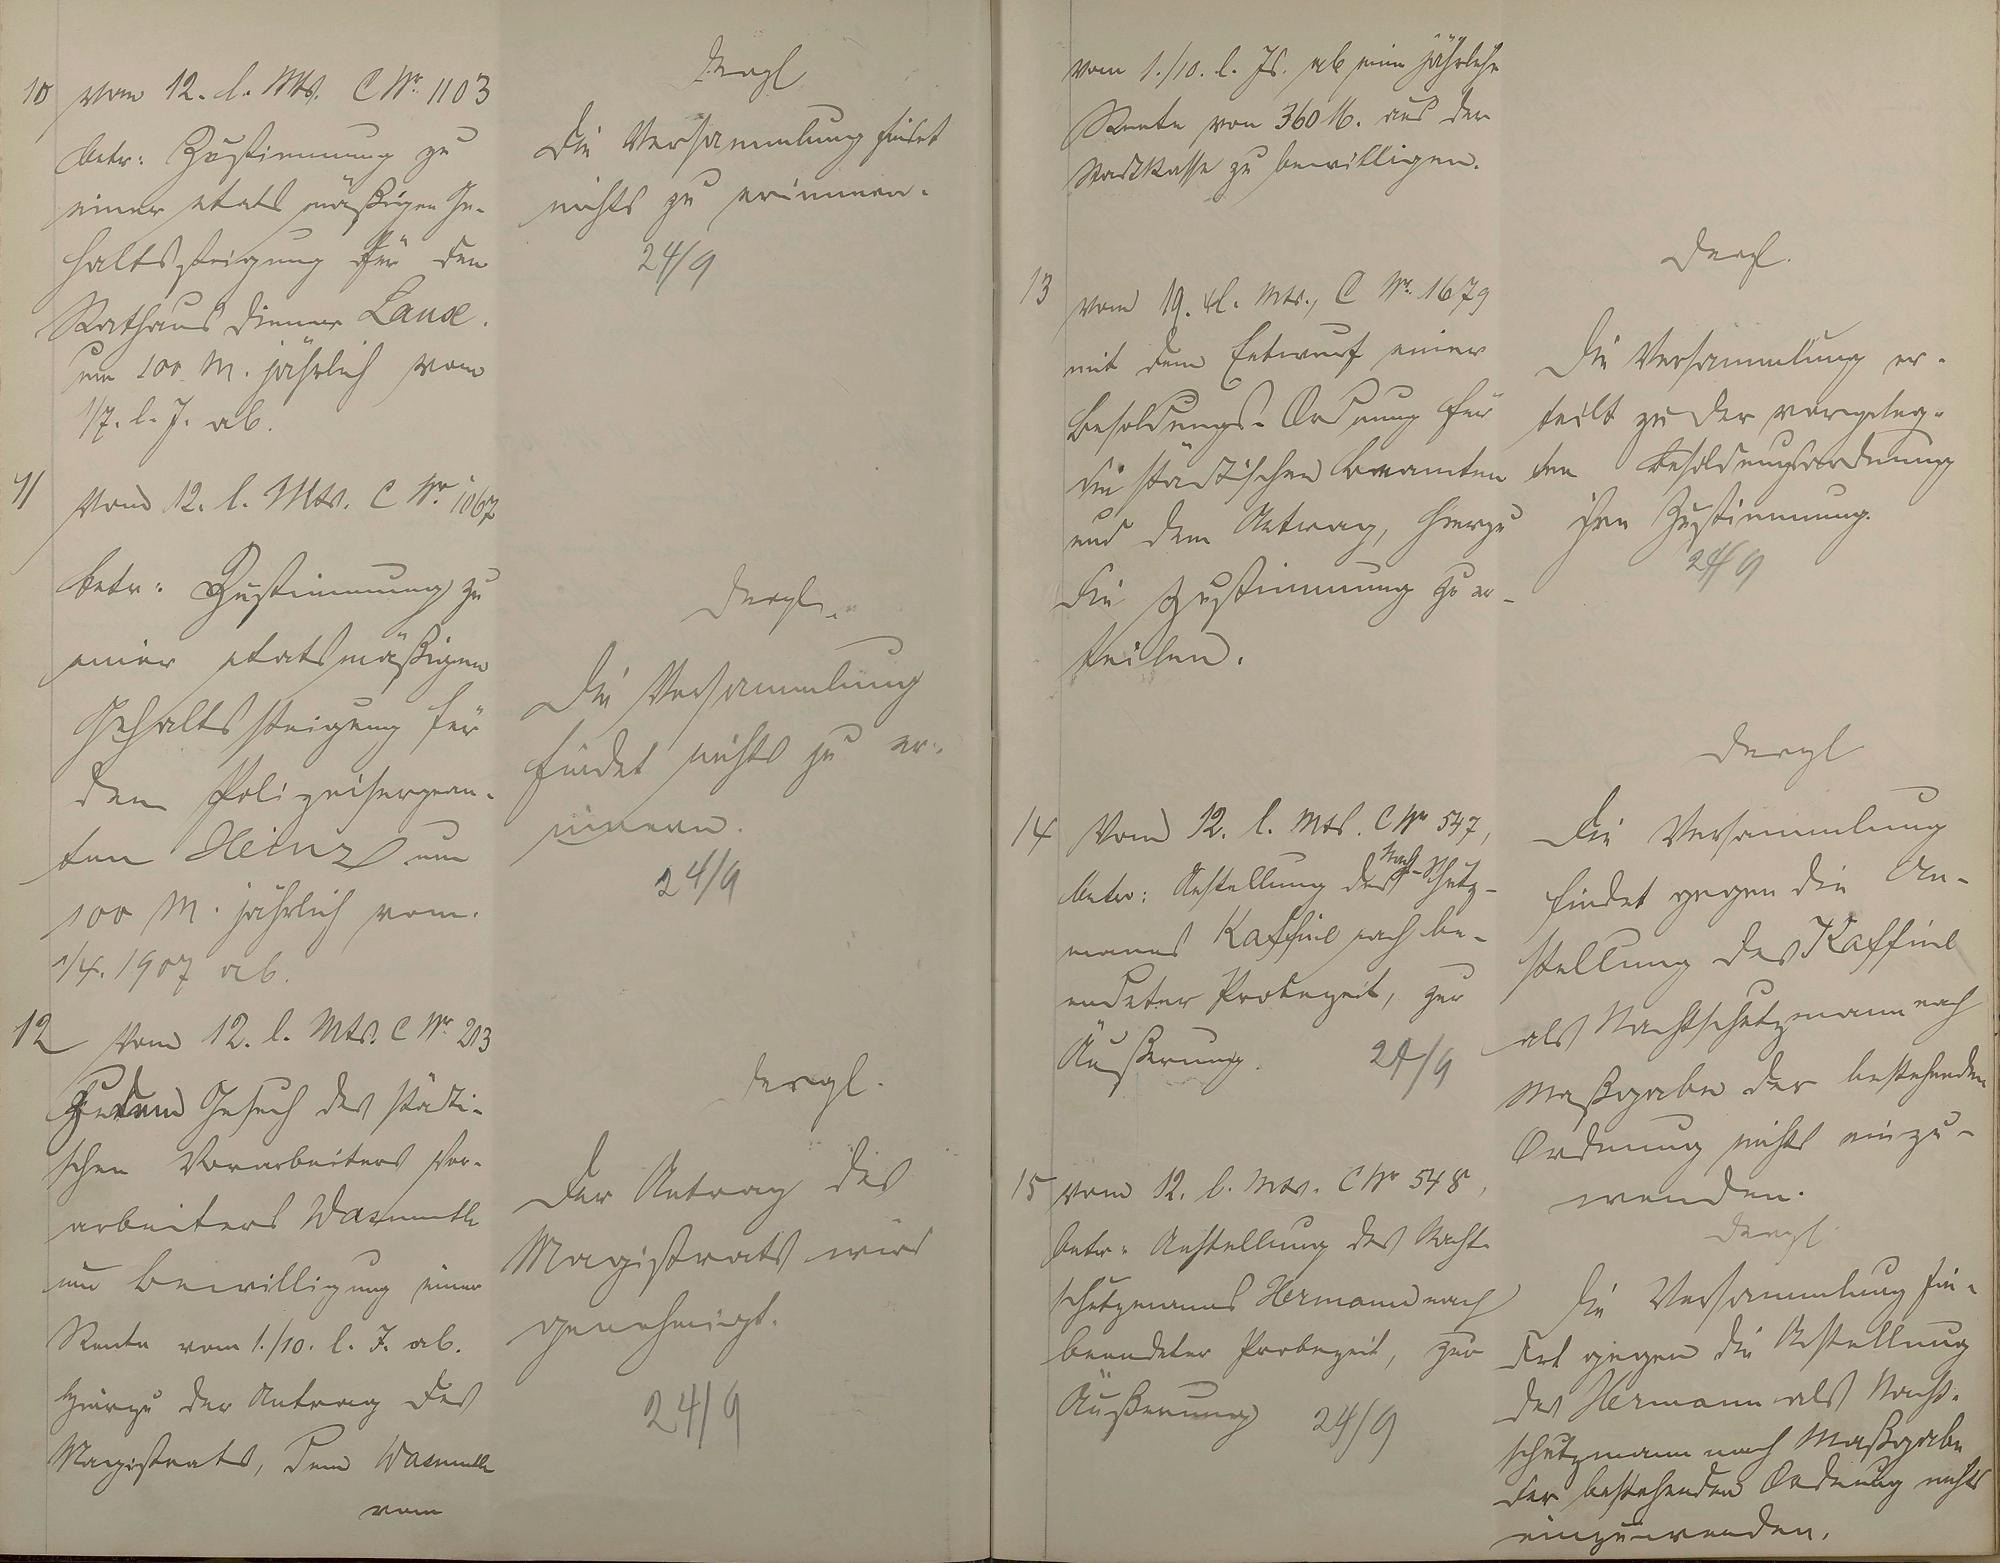 10 vom 12. l. Mts. C Nr. 1103
betr: Zustimmung zu
einer etatsmäßigen Ge-
haltssteigung für den
Rathausdiener Laux.
um 100 M. jährlich vom
1/7. l. J. ab.
dergl.
Die Versammlung findet
nichts zu erinnern.
24/9
11 Vom 12. l. Mts. C Nr. 1067
betr: Zustimmung zu
einer etatsmäßigen
Gehaltssteigung für
den Polizeisergean-
ten Heinz um
100 M. jährlich vom
1/4. 1907 ab.
dergl.
Die Versammlung
findet nichts zu er-
innern.
24/9
12 Vom 12. l. Mts. C Nr. 213
Zu dem Gesuch des städti-
schen Vorarbeiters Vor-
arbeiters Wasmuth
um Bewilligung einer
Rente vom 1./10. l. J. ab.
Hierzu der Antrag des
Magistrats, dem Wasmuth
vom
dergl.
Der Antrag des
Magistrats wird
genehmigt.
24/9
vom 1./10. l. Js. ab eine jährliche
Rente von 360 M. aus der
Stadtkasse zu bewilligen.
13 vom 19. l. Mts., C Nr. 1679
mit dem Entwurf einer
Besoldungs-Ordnung für
die städtischen Beamten
und dem Antrag, hierzu
die Zustimmung zu er-
teilen.
dergl.
Die Versammlung er-
teilt zu der vorgeleg-
ten Besoldungsordnung
ihre Zustimmung.
24/9
14 Vom 12. l. Mts. C Nr 547,
betr: Anstellung des Nacht-Schutz-
manns Kaffine nach be-
endeter Probezeit, zur
Äußerung.
24/9
dergl.
Die Versammlung
findet gegen die An-
stellung des Kaffine
als Nachtschutzmann nach
Maßgabe der bestehenden
Ordnung nichts einzu-
wenden.
15 vom 12. l. Mts. C Nr 548,
betr: Anstellung des Nacht-
schutzmanns Hermann nach
beendeter Probezeit, zur
Äußerung
24/9
dergl.
Die Versammlung fin-
det gegen die Anstellung
des Hermann als Nacht-
schutzmann nach Maßgabe
der bestehenden Ordnung nichts
einzuwenden.